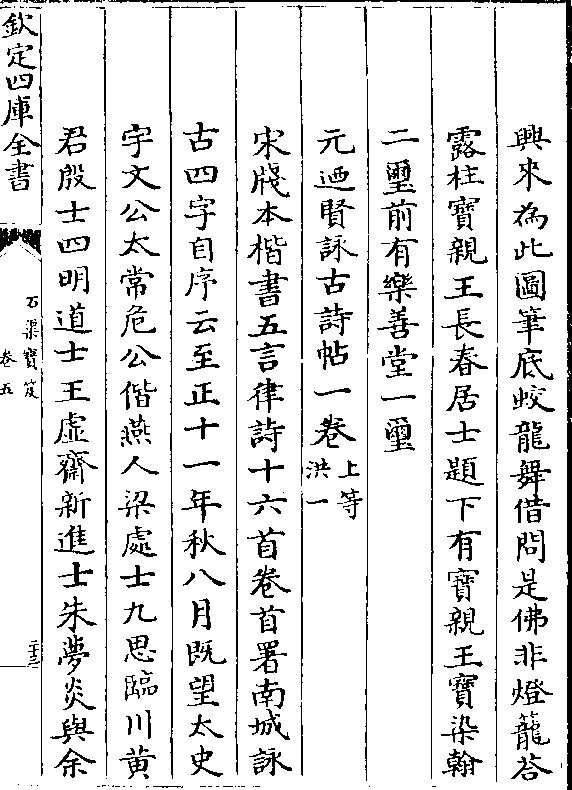 興來為此圖筆底蛟龍舞借問是佛非燈籠荅
露柱寶親王長春居士題下有寶親王寶染翰
二璽前有樂善堂一璽
元迺賢詠古詩帖一卷上等洪一
宋牋本楷書五言律詩十六首卷首署南城詠
古四字自序云至正十一年秋八月既望太史
宇文公太常危公偕燕人梁處士九思臨川黄
君殷士四明道士王虚齋新進士朱夢炎與余
欽定四庫全書
石渠寶笈
卷五
二十三